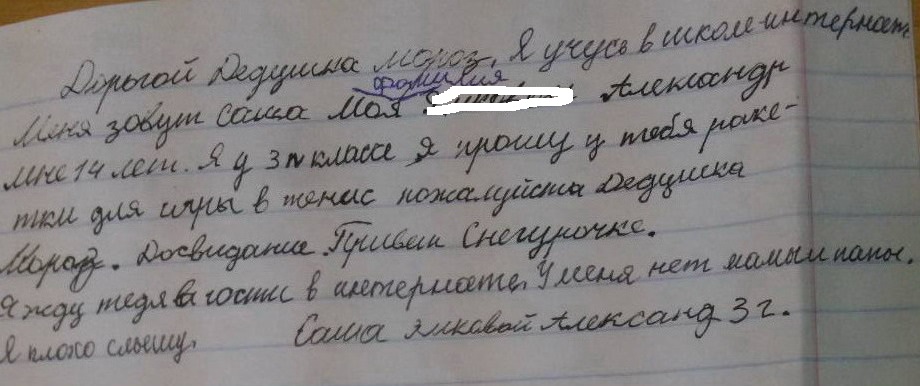 Дорогой Дедушка мороз. Я учусь в школе-интернате
фомилия
Меня зовут Саша Моя Александр
мне 14 лет. Я у 3 классе я прошу у тебя раке-
тки для игры в тенис пожалуйста Дедушка
Мороз. Досвидание. Привет Снегурочке.
Я жду тедя в гости в интернате. У меня нет мамы и папы.
Я плохо слышу. Саша Александ 3 г.